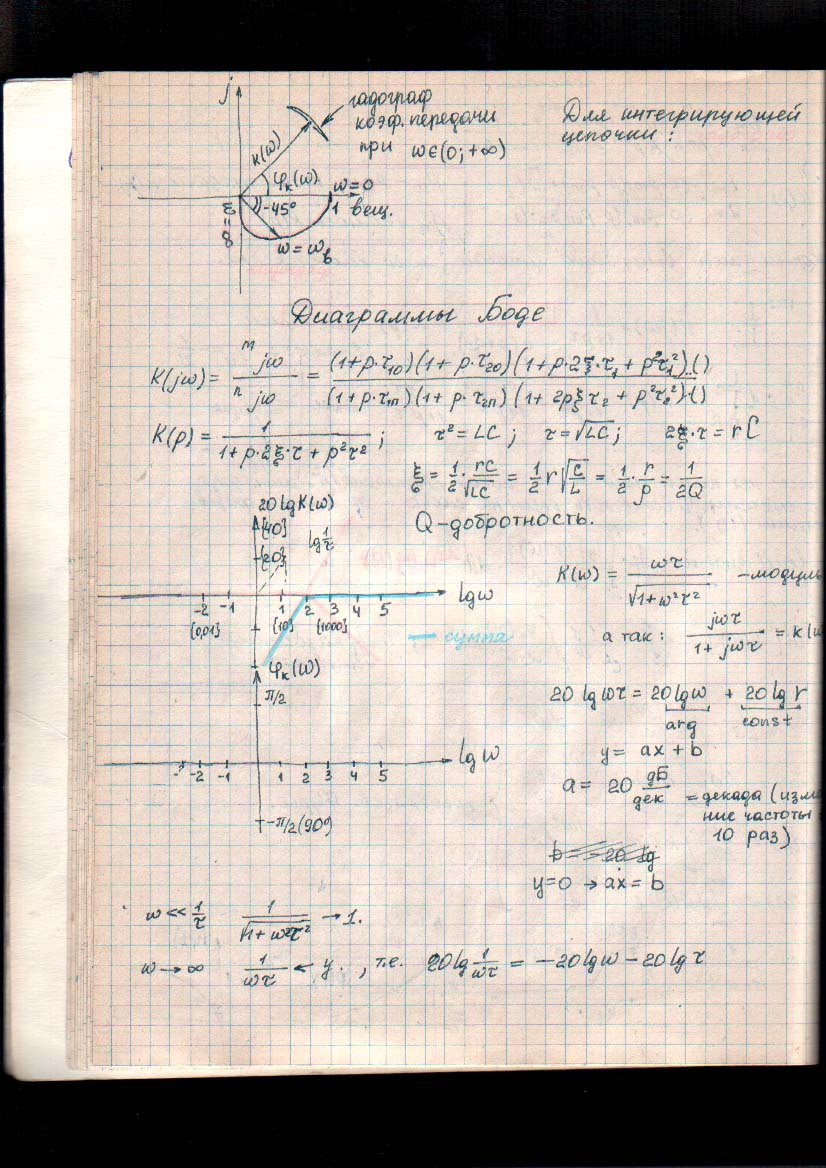 j
годограф
коэф. передачи
при ω∈(0; +∞)
Для интегрирующей
цепочки :
K(ω)
φk(ω)
ω=0
-45°
1 вещ.
ω=∞
ω = ωв
Диаграммы Боде
K(jω) = m jω / n jω = (1+p·τ10)(1+p·τ20)(1+p·2ξ·τ1 + p²τ1²)..() / (1+p·τ1п)(1+p·τ2п)(1+2pξτ2 + p²τ2²)·()
K(p) = 1 / (1+p·2ξ·τ + p²τ²) ; τ² = LC ; τ = √LC ; 2ξ·τ = rC
ξ = 1/2 · rC/√LC = 1/2 r √C/L = 1/2 · r/ρ = 1/2Q
Q - добротность.
20 lg K(ω)
[40]
[20]
lg 1/τ
-2 -1 1 2 3 4 5 lg ω
[0,01] [10] [1000]
сумма
K(ω) = ωτ / √1+ω²τ² - модуль
а так : jωτ / 1+jωτ = k(ω
φk(ω)
π/2
-2 -1 1 2 3 4 5 lg ω
-π/2 (90°)
20 lg ωτ = 20 lg ω + 20 lg τ
arg const
y = ax + b
a = 20 дБ/дек = декада (изме
ние частоты
10 раз)
b = -20 lg
y=0 → ax = b
ω << 1/τ 1/√1+ω²τ² → 1.
ω → ∞ 1/ωτ ← y. , т.е. 20 lg 1/ωτ = -20 lg ω - 20 lg τ